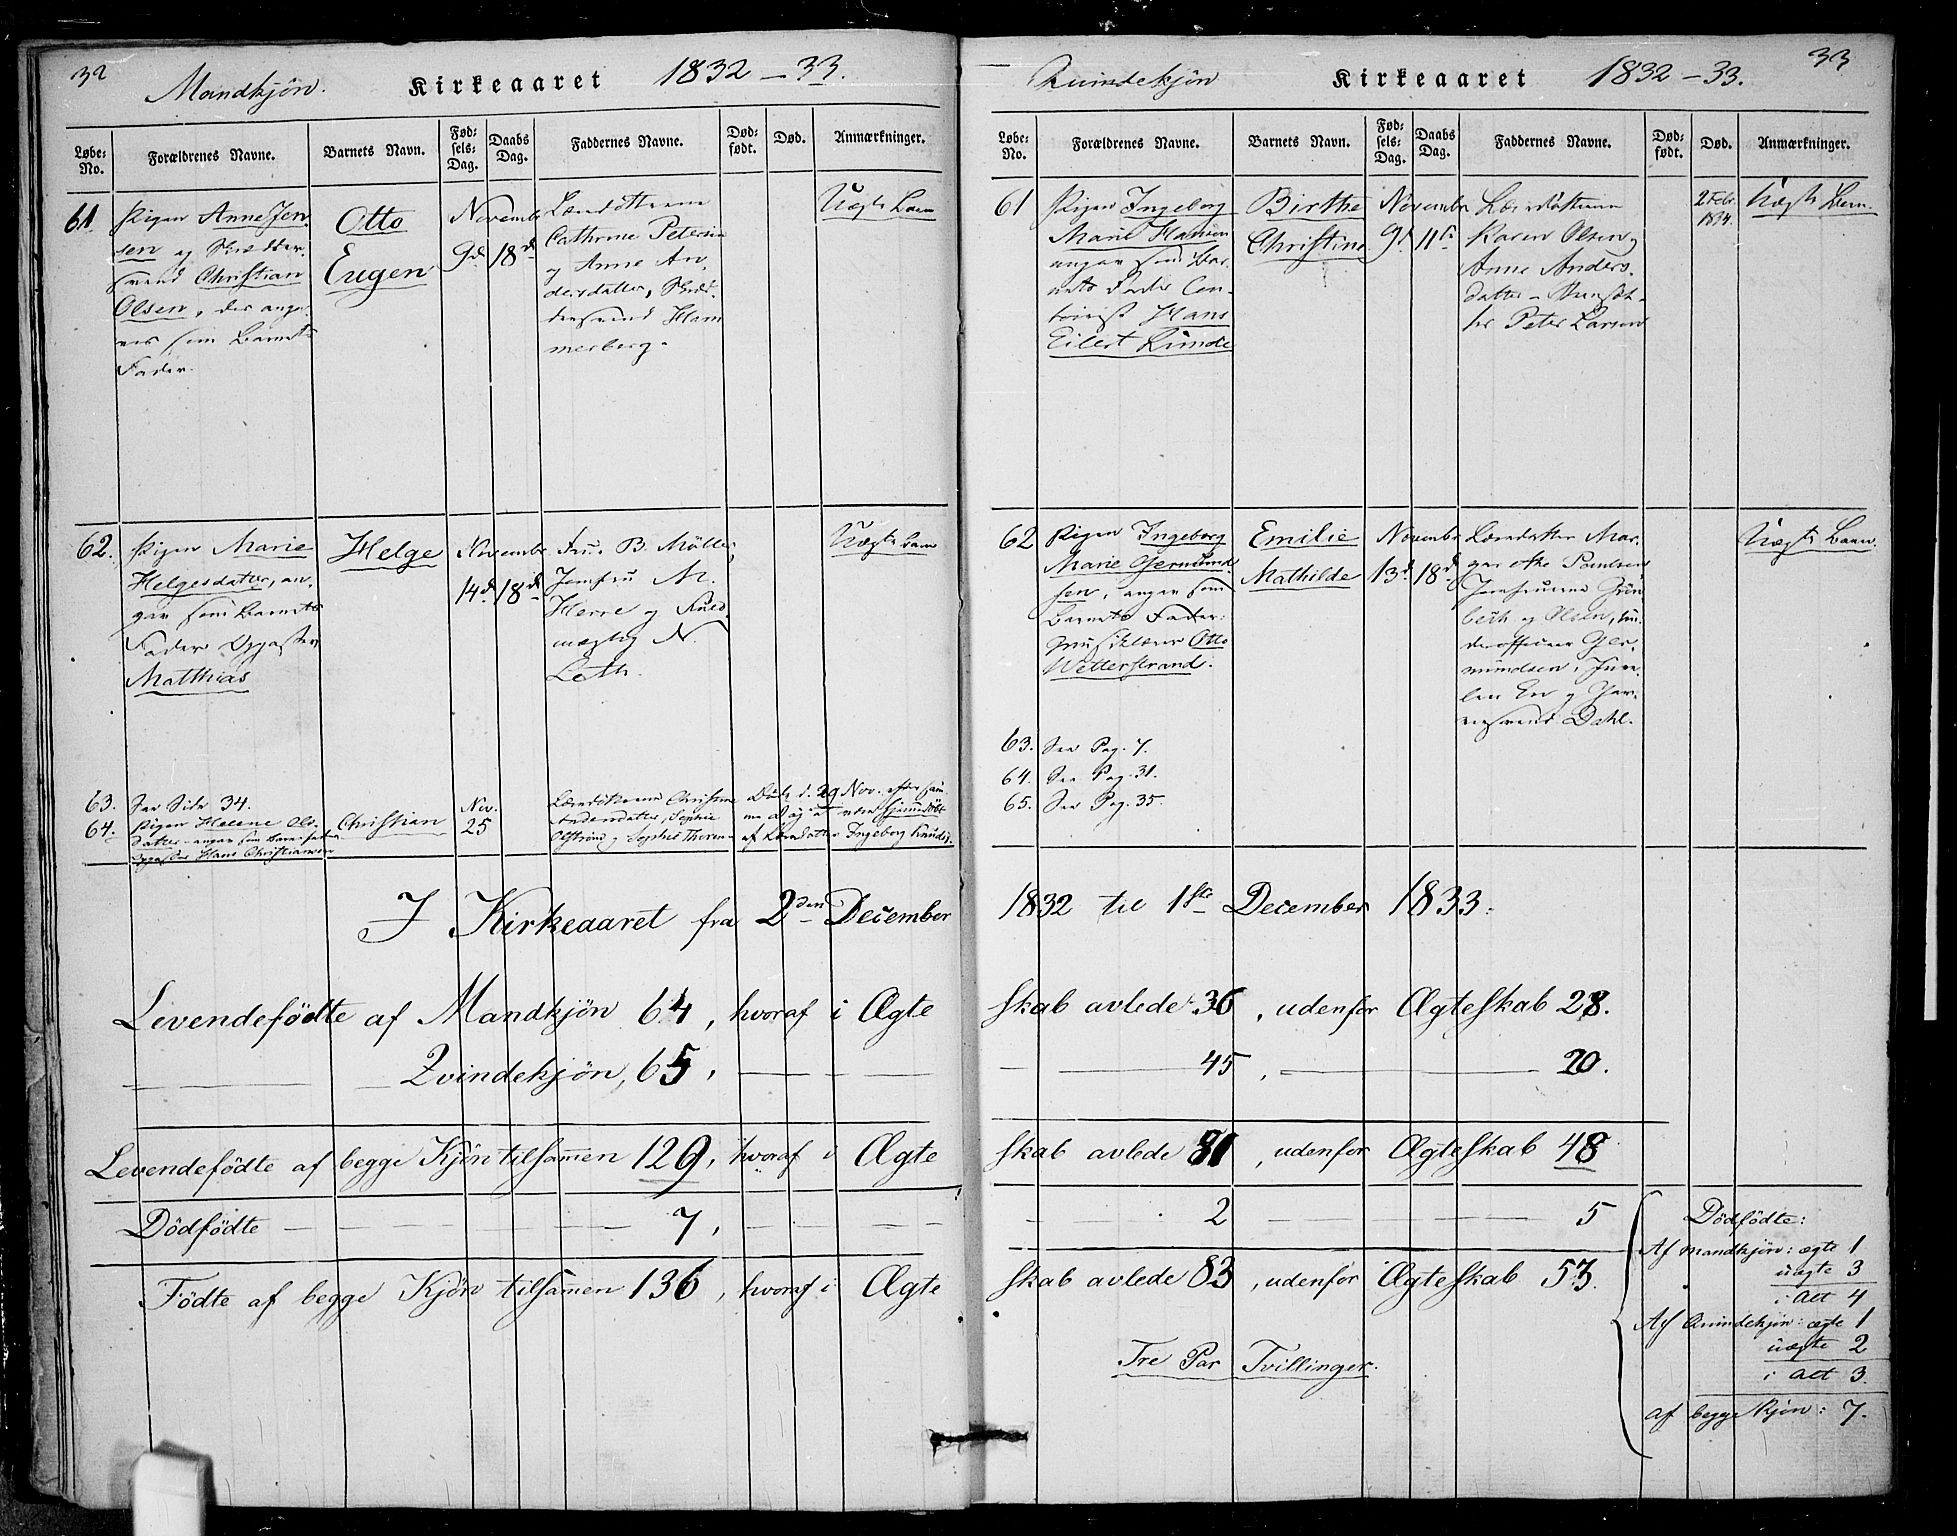 32
Mandkjøn. Kirkeaaret 1832-33.
Løbe-No. Forældrenes Navne. Barnets Navn. Fødsels-Dag. Daabs Dag. Faddernes Navne. Dødfødt. Død. Anmærkninger.
61. Pigen Anne Jen-
sen og Skrædder-
svend Christian
Olsen, der angi-
ves som Barnets
Fader.
Otto
Eugen
November
9d 18d
Cathrine Petersen
og Anne An-
dersdatter, Skræd-
dersvend Ham-
merberg.
Uægte Barn
62. Pigen Marie
Helgesdatter, an-
gav som Barnets
Fader Opgasten
Matthias
Helge
November
14d 18d
Fru B. Möller,
Jomfru M.
Herre og Fuld-
mægtig N.
Leth.
Uægte Barn
63. See Side 34.
64. Pigen Helene Ols-
datter - angav som Barnefader
Opgasten Hans Christiansen
Christian
Nov.
25
Christine
Andersdatter, Sophie
og Sophie
Døde d. 29 Nov. efter sam-
me Dag at være hjemmedöbt
af Ingeborg Knuds.
I Kirkeaaret fra 2den December
Levendefödte af Mandkjön 64, hvoraf i Ægte
Qvindekjön, 65,
Levendefödte af begge Kjön tilsammen 129, hvoraf i Ægte
Dödfödte 7,
Födte af begge Kjön tilsammen 136, hvoraf i Ægte
33
Quindekjön Kirkeaaret 1832-33.
Løbe-No. Forældrenes Navne. Barnets Navn. Fødsels-Dag. Daabs Dag. Faddernes Navne. Dødfødt. Død. Anmærkninger.
61 Pigen Ingeborg
Marie Hansen
angav som Bar-
nets Fader Con-
torist Hans
Eilert Lunde
Birthe
Christine
November
9d 11te
Karen Olsen og
Anne Anders-
datter -
Peter Larsen
2 Febr.
1834.
Uægte Barn.
62 Pigen Ingeborg
Marie Germund-
sen, angav som
Barnets Fader:
Musiklærer Otto
Wetterstrand.
Emilie
Mathilde
November
13d 18d
Mar-
grethe Poulsen,
Jomfruerne Grün-
beth og Olsen, Un-
derofficeer Ger-
mundsen,
Dahl.
Uægte Barn.
63. See Pag. 7.
64. See Pag. 31.
65. See Pag. 35.
1832 til 1ste December 1833.
skab avlede 36, udenfor Ægteskab 28.
45, 20.
skab avlede 81, udenfor Ægteskab 48
2 5
skab avlede 83, udenfor Ægteskab 53.
Tre Par Tvillinger.
Dödfödte:
Af Mandkjön: ægte 1
uægte 3
i Alt 4
Af Quindekjön: ægte 1
uægte 2
i Alt 3.
af begge Kjön: 7.